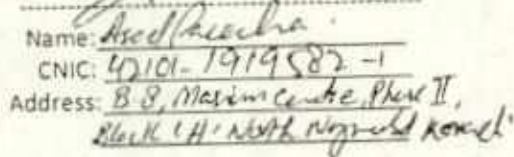 Name: Asad Paracha
CNIC: 42101-1919582-1
Address: B 8, Marium Centre, Phase II,
Block 'H' North Nazimabad Karachi